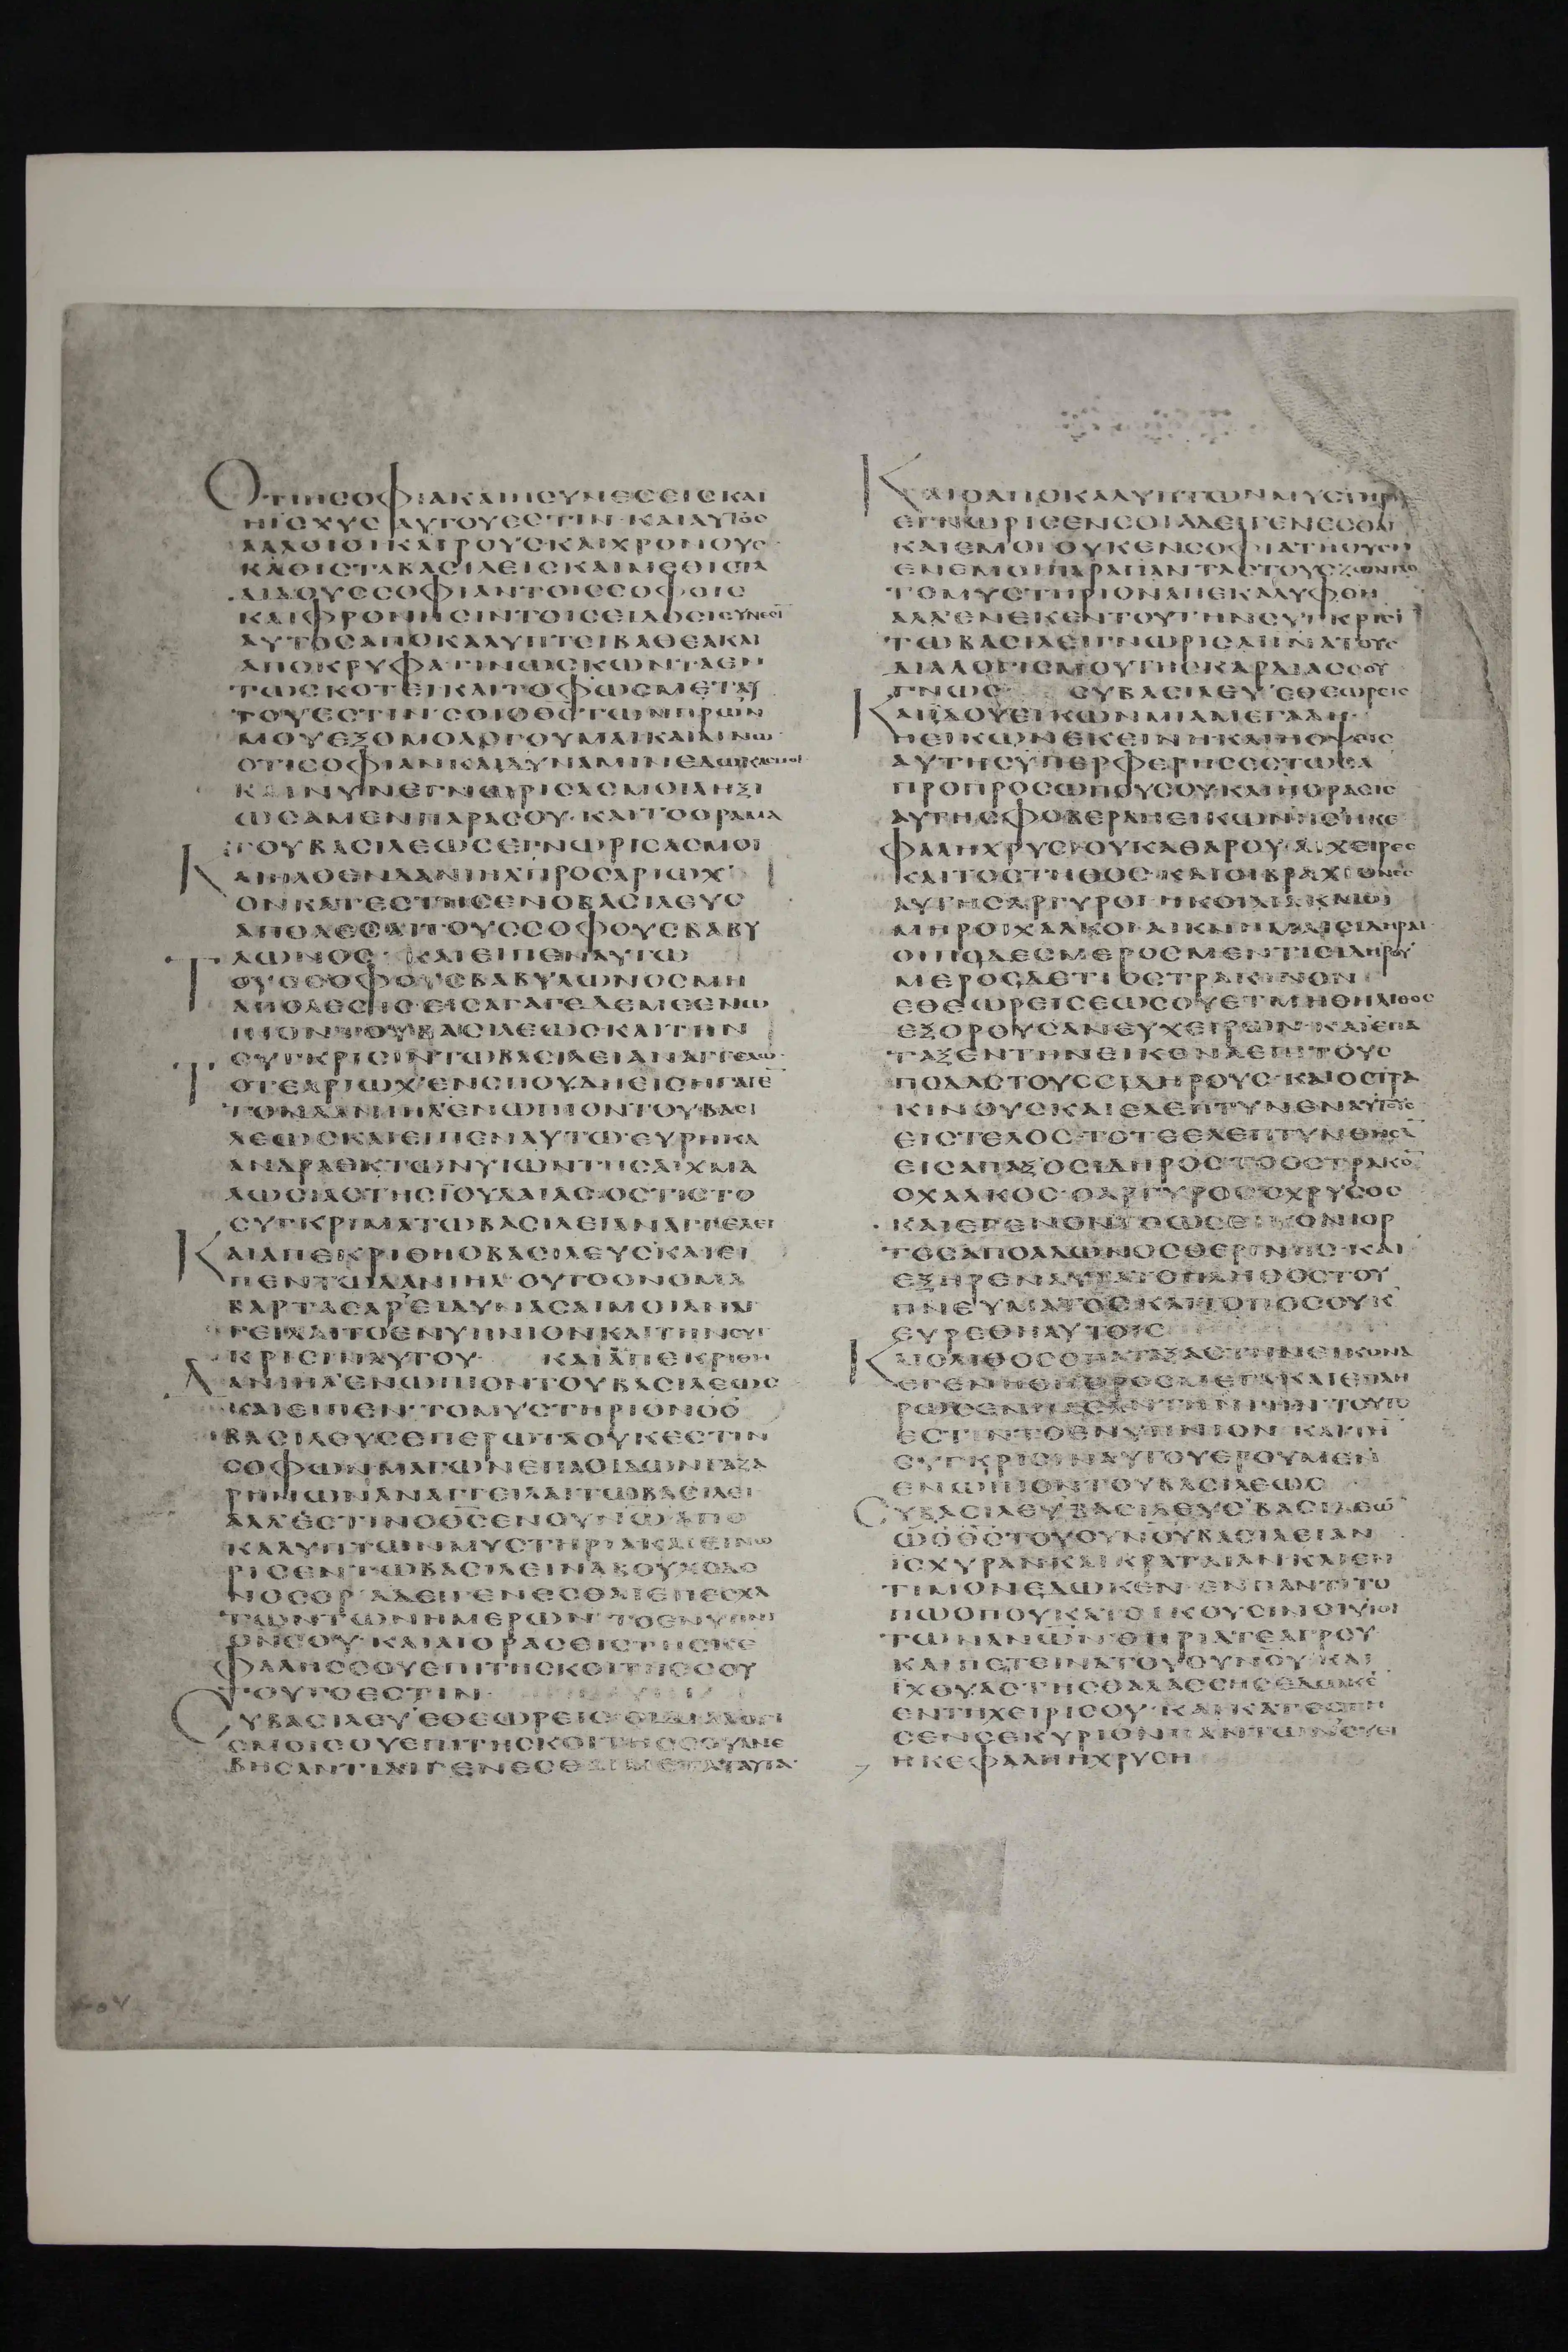 ΟΤΙΗCΟΦΙΑΚΑΙΗCΥΝΕCΕΙCΚΑΙ
ΗΙCΧΥCΑΥΤΟΥΕCΤΙΝ·ΚΑΙΑΥΤΟC
ΑΛΛΟΙΟΙΚΑΙΡΟΥCΚΑΙΧΡΟΝΟΥC·
ΚΑΘΙCΤΑΒΑCΙΛΕΙCΚΑΙΜΕΘΙCΤΑ
ΔΙΔΟΥCCΟΦΙΑΝΤΟΙCCΟΦΟΙC
ΚΑΙΦΡΟΝΗCΙΝΤΟΙCΕΙΔΟCΙCΥΝΕCΙ̅
ΑΥΤΟCΑΠΟΚΑΛΥΠΤΕΙΒΑΘΕΑΚΑΙ
ΑΠΟΚΡΥΦΑΓΙΝΩCΚΩΝΤΑΕΝ
ΤΩCΚΟΤΕΙΚΑΙΤΟΦΩCΜΕΤΑΥ
ΤΟΥΕCΤΙΝ·CΟΙΟΘ̅C̅ΤΩΝΠΡ̅ΩΝ
ΜΟΥΕΞΟΜΟΛΟΓΟΥΜΑΙΚΑΙΑΙΝΩ·
ΟΤΙCΟΦΙΑΝΚΑΙΔΥΝΑΜΙΝΕΔΩΚΑCΜΟΙ
ΚΑΙΝΥΝΕΓΝΩΡΙCΑCΜΟΙΑΗΞΙ
ΩCΑΜΕΝΠΑΡΑCΟΥ·ΚΑΙΤΟΟΡΑΜΑ
ΤΟΥΒΑCΙΛΕΩCΕΓΝΩΡΙCΑCΜΟΙ
ΚΑΙΗΛΘΕΝΔΑΝΙΗΛΠΡΟCΑΡΙΩΧ
ΟΝΚΑΤΕCΤΗCΕΝΟΒΑCΙΛΕΥC
ΑΠΟΛΕCΑΙΤΟΥCCΟΦΟΥCΒΑΒΥ
ΛΩΝΟC·ΚΑΙΕΙΠΕΝΑΥΤΩ
ΤΟΥCCΟΦΟΥCΒΑΒΥΛΩΝΟCΜΗ
ΑΠΟΛΕCΗC·ΕΙCΑΓΑΓΕΔΕΜΕΕΝΩ
ΠΙΟΝΤΟΥΒΑCΙΛΕΩCΚΑΙΤΗΝ
CΥΓΚΡΙCΙΝΤΩΒΑCΙΛΕΙΑΝΑΓΓΕΛΩ·
ΤΟΤΕΑΡΙΩΧΕΝCΠΟΥΔΗΕΙCΗΓΑΓΕ̅
ΤΟΝΔΑΝΙΗΛΕΝΩΠΙΟΝΤΟΥΒΑCΙ
ΛΕΩCΚΑΙΕΙΠΕΝΑΥΤΩ·ΕΥΡΗΚΑ
ΑΝΔΡΑΕΚΤΩΝΥΙΩΝΤΗCΑΙΧΜΑ
ΛΩCΙΑCΤΗCΪΟΥΔΑΙΑC·ΟCΤΙCΤΟ
CΥΓΚΡΙΜΑΤΩΒΑCΙΛΕΙΑΝΑΓΓΕΛΕΙ
ΚΑΙΑΠΕΚΡΙΘΗΟΒΑCΙΛΕΥCΚΑΙΕΙ
ΠΕΝΤΩΔΑΝΙΗΛ·ΟΥΤΟΟΝΟΜΑ
ΒΑΡΤΑCΑΡ·ΕΙΔΥΝΑCΑΙΜΟΙΑΝΑΓ
ΓΕΙΛΑΙΤΟΕΝΥΠΝΙΟΝΚΑΙΤΗΝCΥΓ
ΚΡΙCΙΝΑΥΤΟΥ ΚΑΙΑΠΕΚΡΙΘΗ
ΔΑΝΙΗΛΕΝΩΠΙΟΝΤΟΥΒΑCΙΛΕΩC
ΚΑΙΕΙΠΕΝ·ΤΟΜΥCΤΗΡΙΟΝΟΟ
ΒΑCΙΛΕΥCΕΠΕΡΩΤΑΟΥΚΕCΤΙΝ
CΟΦΩΝΜΑΓΩΝΕΠΑΟΙΔΩΝΓΑΖΑ
ΡΗΝΩΝΑΝΑΓΓΕΙΛΑΙΤΩΒΑCΙΛΕΙ
ΑΛΛΕCΤΙΝΟΘ̅C̅ΕΝΟΥΝ̅Ω̅ΑΠΟ
ΚΑΛΥΠΤΩΝΜΥCΤΗΡΙΑΚΑΙΕΓΝΩ
ΡΙCΕΝΤΩΒΑCΙΛΕΙΝΑΒΟΥΧΟΔΟ
ΝΟCΟΡ·ΑΔΕΙΓΕΝΕCΘΑΙΕΠΕCΧΑ
ΤΩΝΤΩΝΗΜΕΡΩΝ·ΤΟΕΝΥΠΝΙ
ΟΝCΟΥ·ΚΑΙΑΙΟΡΑCΕΙCΤΗCΚΕ
ΦΑΛΗCCΟΥΕΠΙΤΗCΚΟΙΤΗCCΟΥ
ΤΟΥΤΟΕCΤΙΝ·
CΥΒΑCΙΛΕΥΕΘΕΩΡΕΙC·ΟΙΔΙΑΛΟΓΙ
CΜΟΙCΟΥΕΠΙΤΗCΚΟΙΤΗCCΟΥΑΝΕ
ΒΗCΑΝΤΙΔΕΙΓΕΝΕCΘΑΙΜΕΤΑΤΑΥΤΑ·
ΚΑΙΟΑΠΟΚΑΛΥΠΤΩΝΜΥCΤΗΡΙΑ
ΕΓΝΩΡΙCΕΝCΟΙΑΔΕΙΓΕΝΕCΘΑΙ
ΚΑΙΕΜΟΙΟΥΚΕΝCΟΦΙΑΤΗΟΥCΗ
ΕΝΕΜΟΙΠΑΡΑΠΑΝΤΑCΤΟΥCΖΩΝΤΑC
ΤΟΜΥCΤΗΡΙΟΝΑΠΕΚΑΛΥΦΘΗ
ΑΛΛΕΝΕΚΕΝΤΟΥΤΗΝCΥΓΚΡΙCΙ̅
ΤΩΒΑCΙΛΕΙΓΝΩΡΙCΑΙΙΝΑΤΟΥC
ΔΙΑΛΟΓΙCΜΟΥCΤΗCΚΑΡΔΙΑCCΟΥ
ΓΝΩC CΥΒΑCΙΛΕΥΕΘΕΩΡΕΙC
ΚΑΙΙΔΟΥΕΙΚΩΝΜΙΑΜΕΓΑΛΗ·
ΗΕΙΚΩΝΕΚΕΙΝΗΚΑΙΗΟΨΕΙC
ΑΥΤΗCΥΠΕΡΦΕΡΗCΕCΤΩCΑ
ΠΡΟΠΡΟCΩΠΟΥCΟΥ·ΚΑΙΗΟΡΑCΙC
ΑΥΤΗCΦΟΒΕΡΑΗΕΙΚΩΝΗCΗΚΕ
ΦΑΛΗΧΡΥCΙΟΥΚΑΘΑΡΟΥ·ΑΙΧΕΙΡΕC
ΚΑΙΤΟCΤΗΘΟC·ΚΑΙΟΙΒΡΑΧΙΟΝΕC
ΑΥΤΗCΑΡΓΥΡΟΙ·ΗΚΟΙΛΙΑΚΑΙΟΙ
ΜΗΡΟΙΧΑΛΚΟΙ·ΑΙΚΝΗΜΑΙCΙΔΗΡΑΙ
ΟΙΠΟΔΕCΜΕΡΟCΜΕΝΤΙCΙΔΗΡΟΥ
ΜΕΡΟCΔΕΤΙΟCΤΡΑΚΙΝΟΝ
ΕΘΕΩΡΕΙCΕΩCΟΥΕΤΜΗΘΗΛΙΘΟC
ΕΞΟΡΟΥCΑΝΕΥΧΕΙΡΩΝ·ΚΑΙΕΠΑ
ΤΑΞΕΝΤΗΝΕΙΚΟΝΑΕΠΙΤΟΥC
ΠΟΔΑCΤΟΥCCΙΔΗΡΟΥC·ΚΑΙΟCΤΡΑ
ΚΙΝΟΥCΚΑΙΕΛΕΠΤΥΝΕΝΑΥΤΟΥC
ΕΙCΤΕΛΟC·ΤΟΤΕΕΛΕΠΤΥΝΘΗCΑ̅
ΕΙCΑΠΑΞΟCΙΔΗΡΟCΤΟΟCΤΡΑΚΟ̅
ΟΧΑΛΚΟC·ΟΑΡΓΥΡΟCΟΧΡΥCΟC
ΚΑΙΕΓΕΝΟΝΤΟΩCΕΙΚΟΝΙΟΡ
ΤΟCΑΠΟΑΛΩΝΟCΘΕΡΙΝΗC·ΚΑΙ
ΕΞΗΡΕΝΑΥΤΑΤΟΠΛΗΘΟCΤΟΥ
ΠΝΕΥΜΑΤΟCΚΑΙΤΟΠΟCΟΥΧ
ΕΥΡΕΘΗΑΥΤΟΙC
ΚΑΙΟΛΙΘΟCΟΠΑΤΑΞΑCΤΗΝΕΙΚΟΝΑ
ΕΓΕΝΗΘΗΟΡΟCΜΕΓΑΚΑΙΕΠΛΗ
ΡΩCΕΝΠΑCΑΝΤΗΝΓΗΝ·ΤΟΥΤΟ
ΕCΤΙΝΤΟΕΝΥΠΝΙΟΝ·ΚΑΙΤΗ̅
CΥΓΚΡΙCΙΝΑΥΤΟΥΕΡΟΥΜΕΝ
ΕΝΩΠΙΟΝΤΟΥΒΑCΙΛΕΩC
CΥΒΑCΙΛΕΥΒΑCΙΛΕΥCΒΑCΙΛΕΩ̅
ΩΟΘ̅C̅ΤΟΥΟΥΝΟΥΒΑCΙΛΕΙΑΝ
ΙCΧΥΡΑΝΚΑΙΚΡΑΤΑΙΑΝΚΑΙΕΝ
ΤΙΜΟΝΕΔΩΚΕΝ·ΕΝΠΑΝΤΙΤΟ
ΠΩΟΠΟΥΚΑΤΟΙΚΟΥCΙΝΟΙΥΙΟΙ
ΤΩΝΑΝ̅Ω̅Ν̅·ΘΗΡΙΑΤΕΑΓΡΟΥ
ΚΑΙΠΕΤΕΙΝΑΤΟΥΟΥΝΟΥ·ΚΑΙ
ΙΧΘΥΑCΤΗCΘΑΛΑCCΗCΕΔΩΚΕ
ΕΝΤΗΧΕΙΡΙCΟΥ·ΚΑΙΚΑΤΕCΤΗ
CΕΝCΕΚΥΡΙΟΝΠΑΝΤΩΝCΥΕΙ
ΗΚΕΦΑΛΗΗΧΡΥCΗ